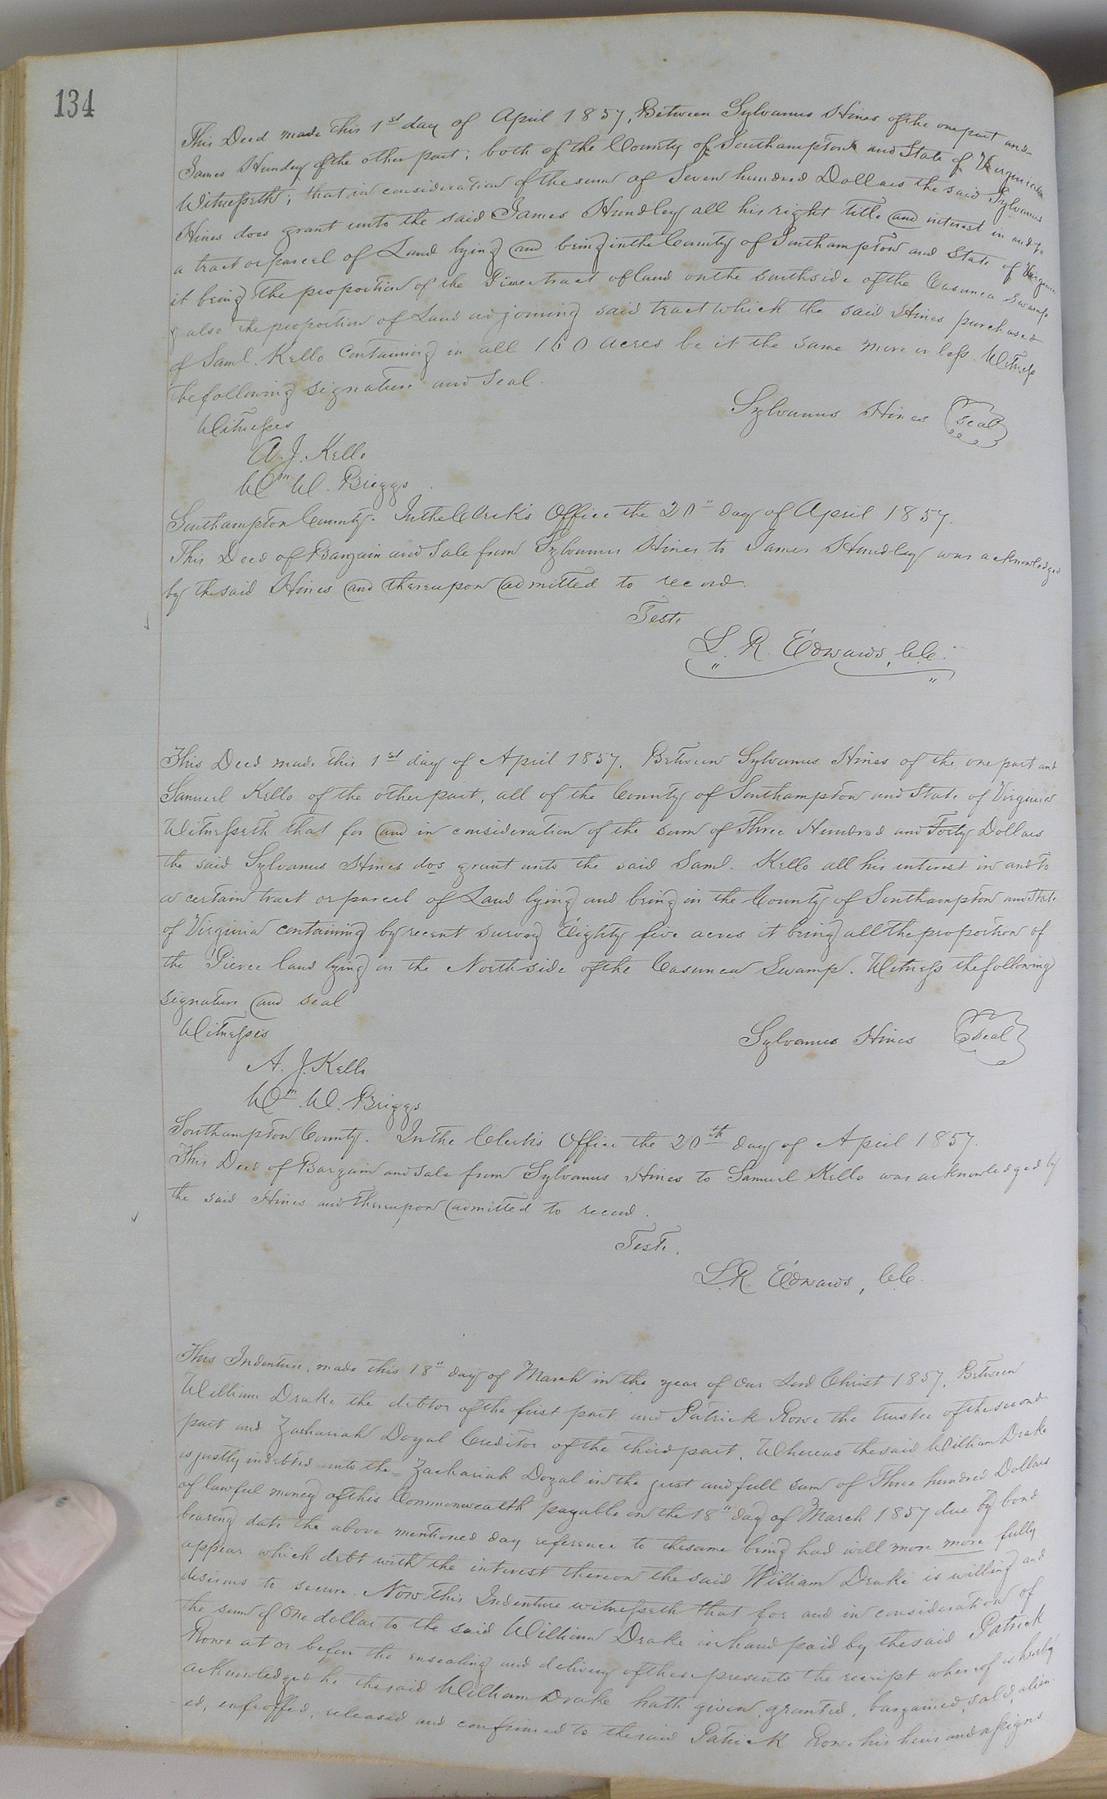 134
This Deed made this 1st day of April 1857, Between Sylvanus Hines of the one part and
James Hundley of the other part; both of the County of Southampton and State of Virginia
Witnesseth; that in consideration of the sum of Seven hundred Dollars the said Sylvanus
Hines does grant unto the said James Hundley all his right title and interest in and to
a tract or parcel of Land lying and being in the County of Southampton and State of Virginia
it being the proportion of the Pierce tract of land on the south side of the Swamp
& also the proportion of Land adjoining said tract which the said Hines purchased
of Saml. Kello containing in all 160 acres be it the same more or less. Witness
the following signature and seal.
Sylvanus Hines seal
Witnesses
A. J. Kello
Wm W. Briggs
Southampton County. In the Clerk's Office the 20" day of April 1857.
This Deed of Bargain and Sale from Sylvanus Hines to James Hundley was acknowledged
by the said Hines and thereupon admitted to record.
Teste
L. R. Edwards, C.C.
This Deed made this 1st day of April 1857, Between Sylvanus Hines of the one part and
Samuel Kello of the other part, all of the County of Southampton and State of Virginia
Witnesseth that for and in consideration of the sum of Three Hundred and Forty Dollars
the said Sylvanus Hines dos grant unto the said Saml. Kello all his interest in and to
a certain tract or parcel of Land lying and being in the County of Southampton and State
of Virginia containing by recent survey Eighty five acres it being all the proportion of
the Pierce land lying on the North side of the Swamp. Witness the following
signature and seal
Witnesses
Sylvanus Hines seal
A. J. Kello
Wm. W. Briggs
Southampton County. In the Clerk's Office the 20th day of April 1857.
This Deed of Bargain and Sale from Sylvanus Hines to Samuel Kello was acknowledged by
the said Hines and thereupon admitted to record.
Teste.
L. R. Edwards, C.C.
This Indenture, made this 18" day of March in the year of our Lord Christ 1857, Between
William Drake the debtor of the first part and Patrick Rowe the trustee of the second
part and Zachariah Doyal Creditor of the third part. Whereas the said William Drake
is justly indebted unto the Zachariah Doyal in the just and full sum of Three hundred Dollars
of lawful money of this Commonwealth payable on the 18" day of March 1857 due by bond
bearing date the above mentioned day reference to the same being had will more more fully
appear which debt with the interest thereon the said William Drake is willing and
desirous to secure. Now this Indenture witnesseth that for and in consideration of
the sum of One dollar to the said William Drake in hand paid by the said Patrick
Rowe at or before the ensealing and delivery of these presents the receipt whereof is hereby
acknowledged he the said William Drake hath given, granted, bargained, sold, alien
ed, enfeoffed, released and confirmed to the said Patrick Rowe his heirs and assigns